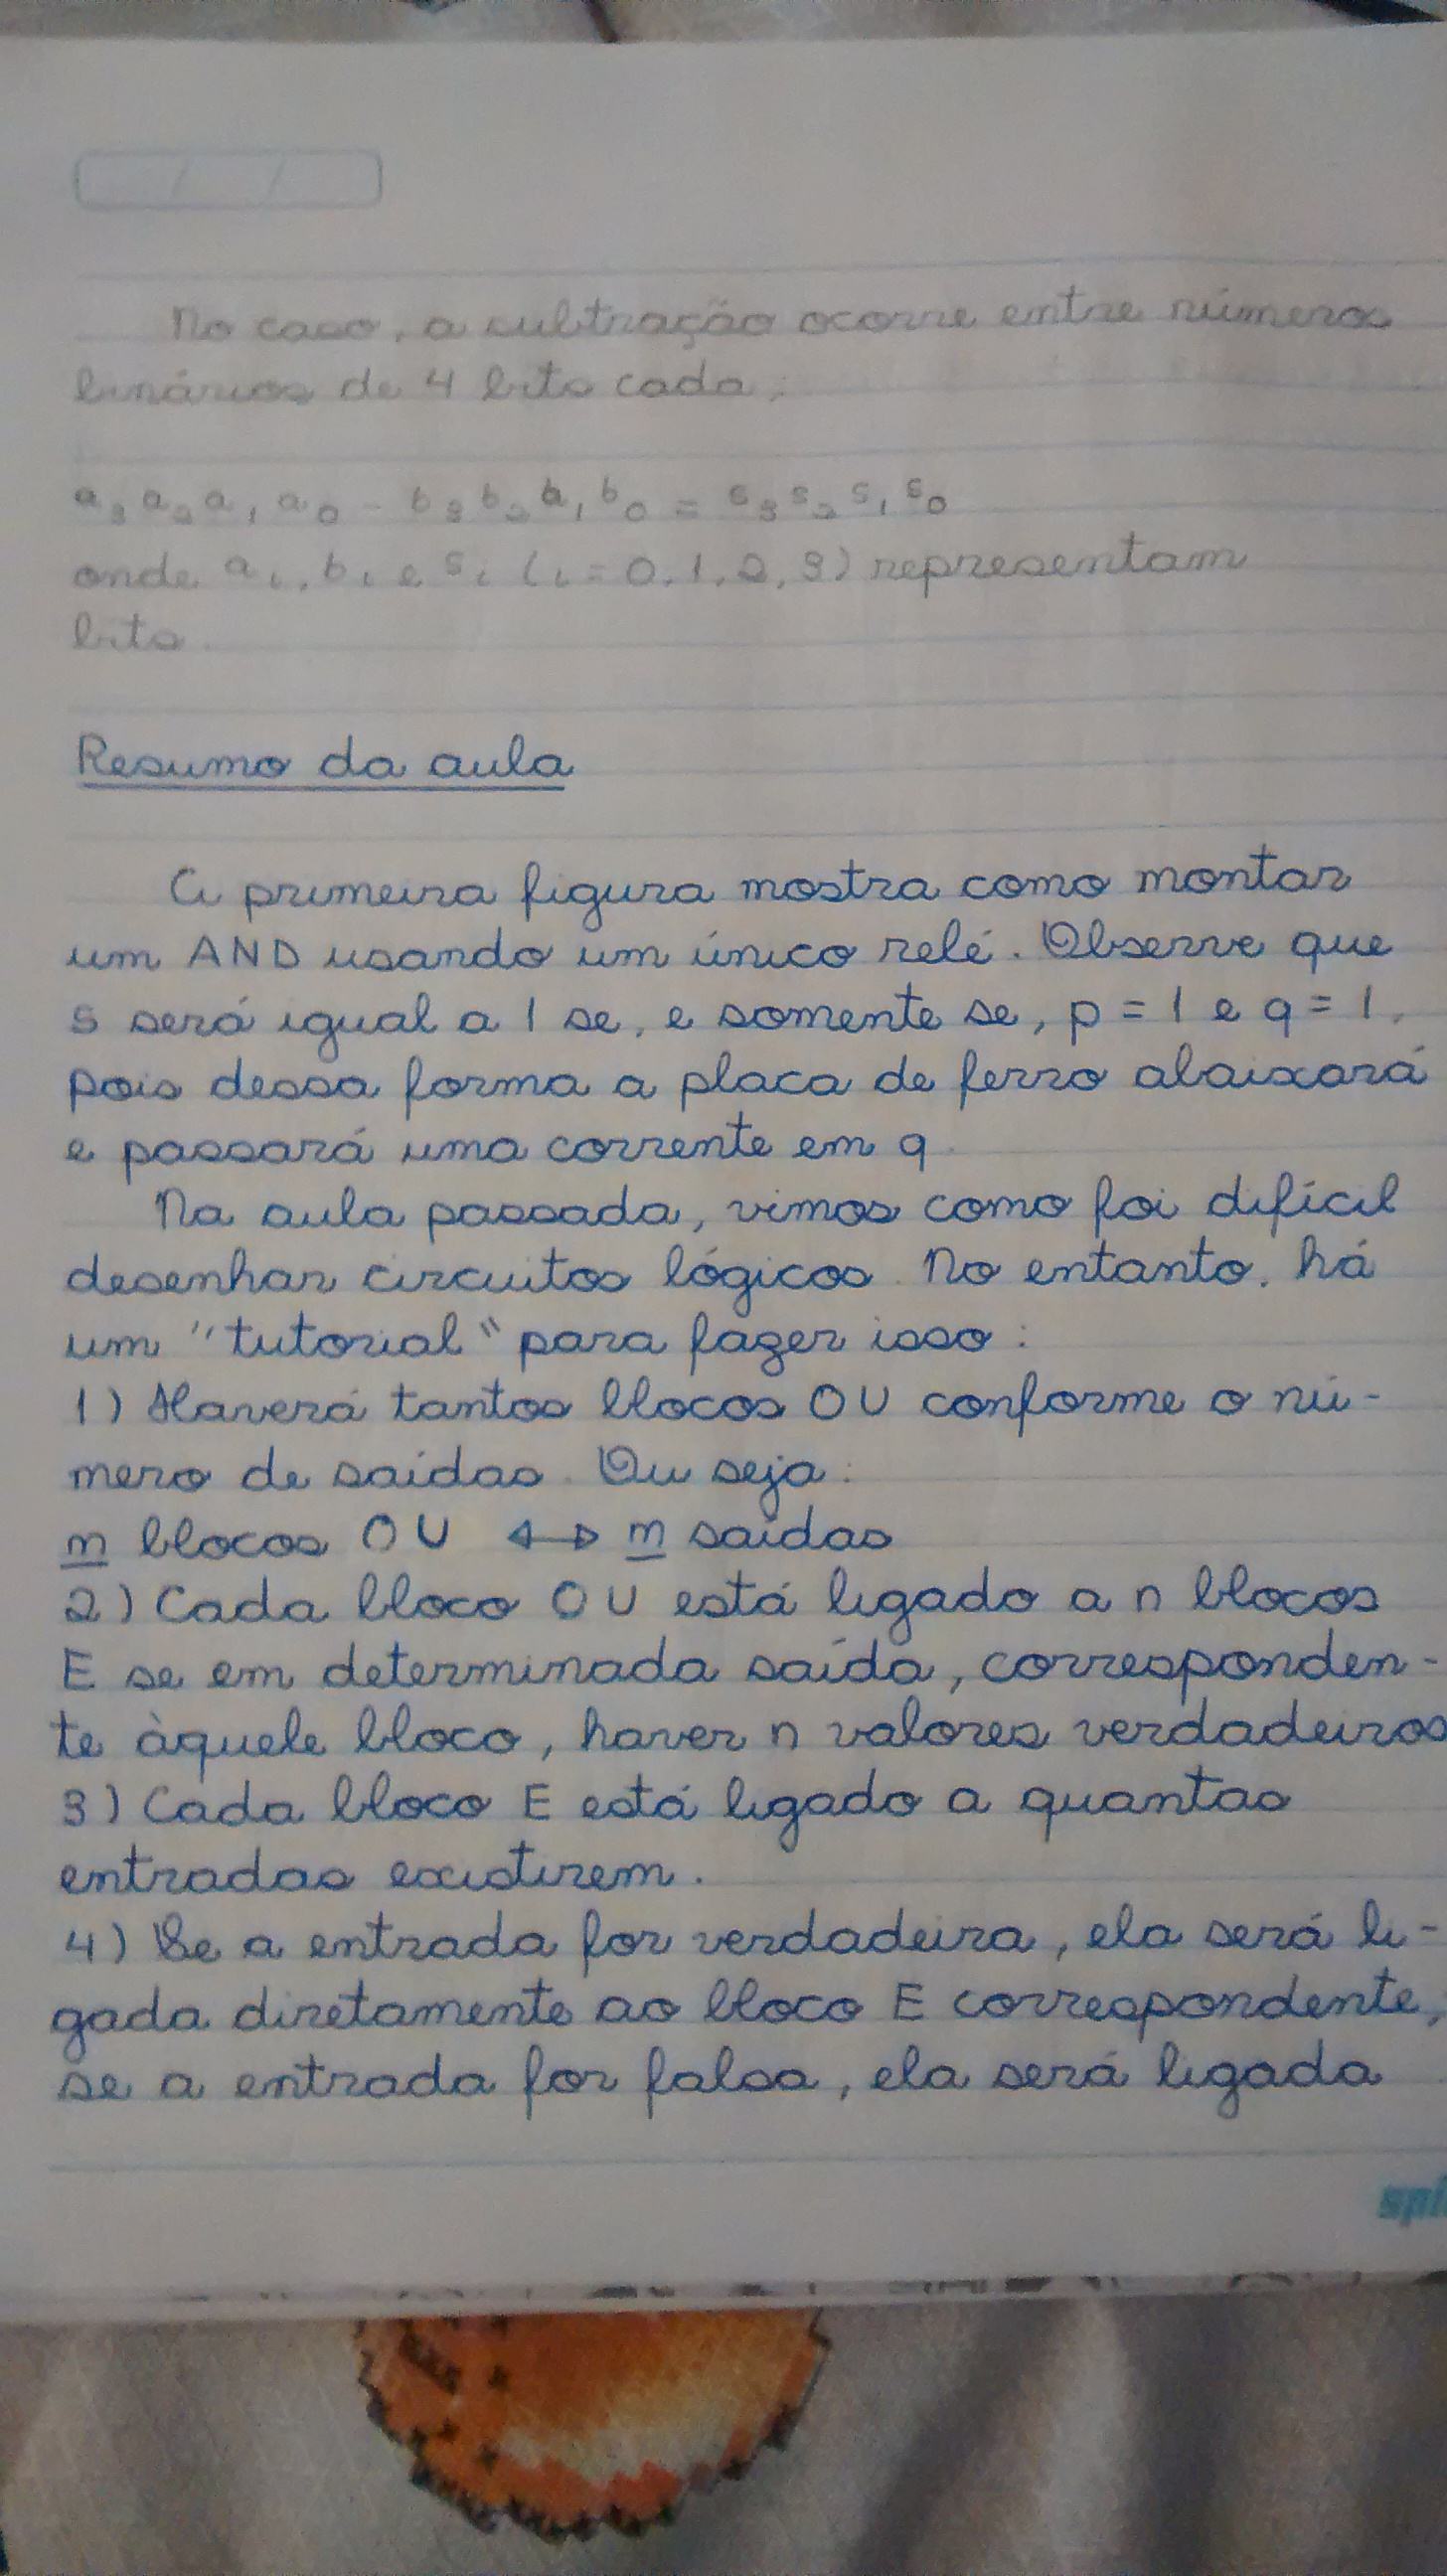 No caso, a subtração ocorre entre números
binários de 4 bits cada;
a₃a₂a₁a₀ - b₃b₂b₁b₀ = s₃s₂s₁s₀
onde aᵢ, bᵢ e sᵢ (i = 0, 1, 2, 3) representam
bits.
Resumo da aula
A primeira figura mostra como montar
um AND usando um único relé. Observe que
s será igual a 1 se, e somente se, p = 1 e q = 1,
pois dessa forma a placa de ferro abaixará
e passará uma corrente em q.
Na aula passada, vimos como foi difícil
desenhar circuitos lógicos. No entanto, há
um "tutorial" para fazer isso:
1) Haverá tantos blocos OU conforme o nú-
mero de saídas. Ou seja:
m blocos OU ↔ m saídas
2) Cada bloco OU está ligado a n blocos
E se em determinada saída, corresponden-
te àquele bloco, haver n valores verdadeiros
3) Cada bloco E está ligado a quantas
entradas existirem.
4) Se a entrada for verdadeira, ela será li-
gada diretamente ao bloco E correspondente,
se a entrada for falsa, ela será ligada